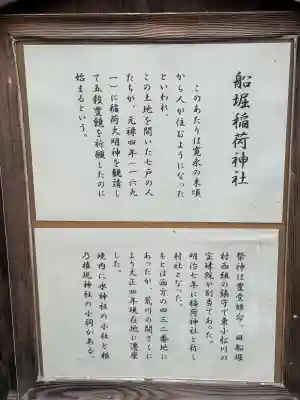 船堀稲荷神社
このあたりは寛永の末頃
から人が住むようになった
といわれ、
この土地を開いた七戸の人
たちが、元禄四年(一六九
一)に稲荷大明神を観請し
て五穀豊饒を祈願したのに
始まるという。
祭神は豊受姫命。旧船堀
村西組の鎮守で東小松川の
宝珠院が別当であった。
明治七年に稲荷神社と称し
村社となった。
もとは西方の四三二番地に
あったが、荒川の開さくに
より大正四年現在地に遷座
した。
境内に水神社の小社と根
乃権現神社の小祠がある。